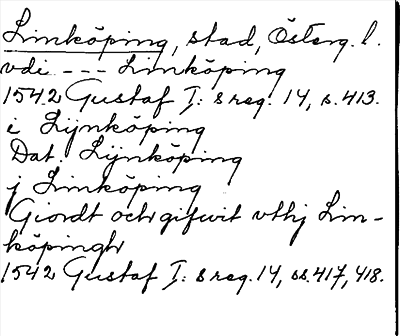 Linköping, stad, Österg. l.
vdi --- Linköping
1542 Gustaf I:s reg. 14, s. 413.
i Lijnköping
Dat. Lijnköping
j Linköping
Giordt och gifwit vthj Lin-
köpingh
1542 Gustaf I:s reg. 14, ss. 417, 418.